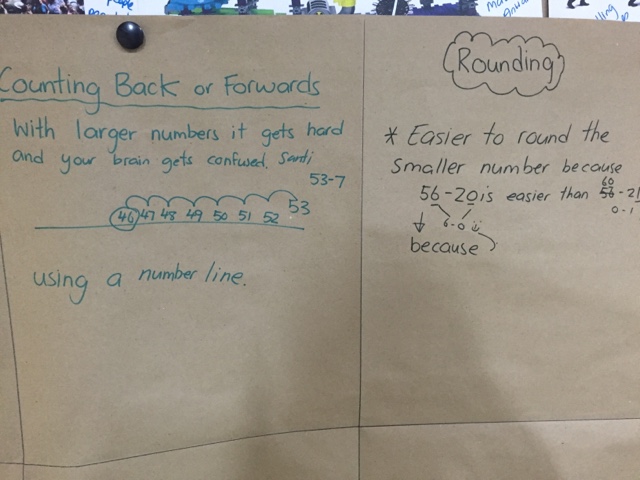 Counting Back or Forwards
With larger numbers it gets hard
and your brain gets confused. Santi
53-7
46 47 48 49 50 51 52 53
using a number line.
Rounding
* Easier to round the
smaller number because
60
56-20 is easier than 56-21
6-0
0-1
because